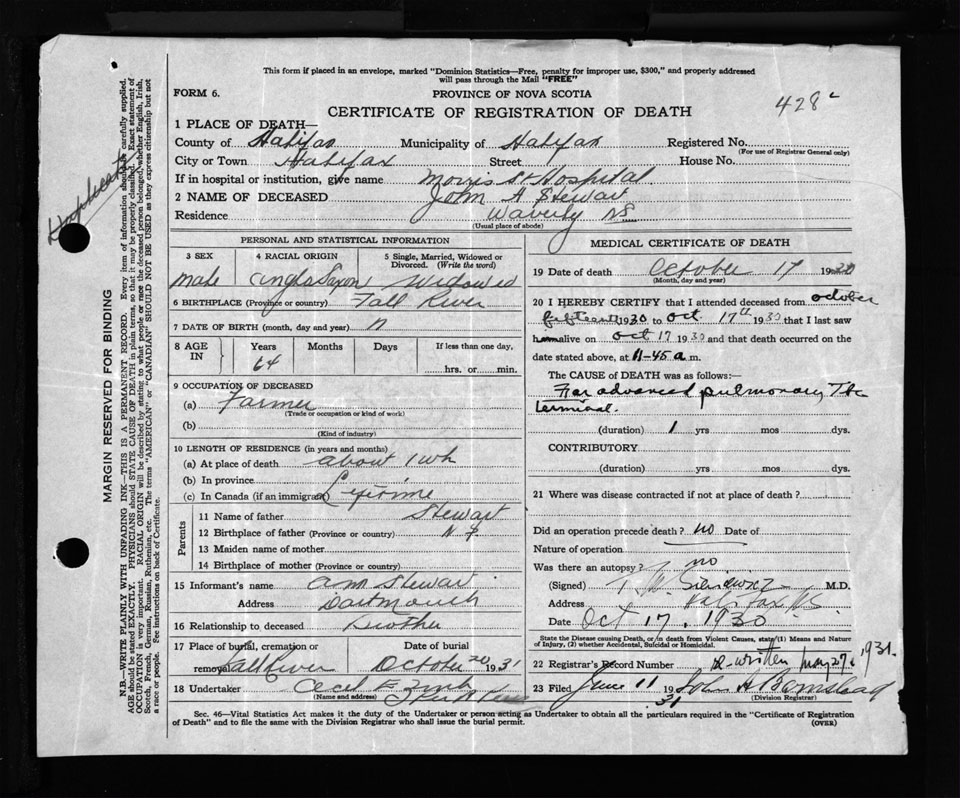 This form if placed in an envelope, marked "Dominion Statistics—Free, penalty for improper use, $300," and properly addressed
will pass through the Mail "FREE"
FORM 6.
PROVINCE OF NOVA SCOTIA
428
CERTIFICATE OF REGISTRATION OF DEATH
Duplicate
MARGIN RESERVED FOR BINDING
N.B.—WRITE PLAINLY WITH UNFADING INK—THIS IS A PERMANENT RECORD. Every item of information should be carefully supplied.
AGE should be stated EXACTLY. PHYSICIANS should STATE CAUSE OF DEATH in plain terms, so that it may be properly classified. Exact statement of
OCCUPATION is very important. RACIAL ORIGIN will be described by stating to what people or race the deceased person belonged, whether English, Irish,
Scotch, French, German, Russian, Ruthenian, etc. The terms "AMERICAN" or "CANADIAN" SHOULD NOT BE USED as they express citizenship but not
a race or people. See instructions on back of Certificate.
1 PLACE OF DEATH—
County of Halifax Municipality of Halifax Registered No.
(For use of Registrar General only)
City or Town Halifax Street House No.
If in hospital or institution, give name Morris St Hospital
2 NAME OF DECEASED John A Stewart
Residence Waverly NS
(Usual place of abode)
PERSONAL AND STATISTICAL INFORMATION
3 SEX 4 RACIAL ORIGIN 5 Single, Married, Widowed or
Divorced. (Write the word)
male Anglo Saxon Widowed
6 BIRTHPLACE (Province or country) Fall River
7 DATE OF BIRTH (month, day and year)
8 AGE IN Years Months Days If less than one day,
64 hrs. or min.
9 OCCUPATION OF DECEASED
(a) Farmer
(Trade or occupation or kind of work)
(b)
(Kind of industry)
10 LENGTH OF RESIDENCE (in years and months)
(a) At place of death about 1 wk
(b) In province
(c) In Canada (if an immigrant) Lifetime
Parents
11 Name of father Stewart
12 Birthplace of father (Province or country)
13 Maiden name of mother
14 Birthplace of mother (Province or country)
15 Informant's name A M Stewart
Address Dartmouth
16 Relationship to deceased Brother
17 Place of burial, cremation or Date of burial
removal Fall River October 20 1931
18 Undertaker Cecil E Zink
(Name and address)
MEDICAL CERTIFICATE OF DEATH
19 Date of death October 17 1930
(Month, day and year)
20 I HEREBY CERTIFY that I attended deceased from October
fifteenth 1930 to Oct. 17th 1930 that I last saw
h m alive on Oct 17 1930 and that death occurred on the
date stated above, at 11-45 a m.
The CAUSE of DEATH was as follows:
Far advanced pulmonary Tbc
terminal.
(duration) 1 yrs mos dys.
CONTRIBUTORY
(duration) yrs mos dys.
21 Where was disease contracted if not at place of death?
Did an operation precede death? no Date of
Nature of operation
Was there an autopsy? no
(Signed) M.D.
Address Halifax NS
Date Oct 17, 1930
State the Disease causing Death, or in death from Violent Causes, state (1) Means and Nature
of Injury, (2) whether Accidental, Suicidal or Homicidal.
22 Registrar's Record Number Re-written May 27, 1931.
23 Filed June 11 1931 John A Barnstead
(Division Registrar)
Sec. 46—Vital Statistics Act makes it the duty of the Undertaker or person acting as Undertaker to obtain all the particulars required in the "Certificate of Registration
of Death" and to file the same with the Division Registrar who shall issue the burial permit.
(OVER)